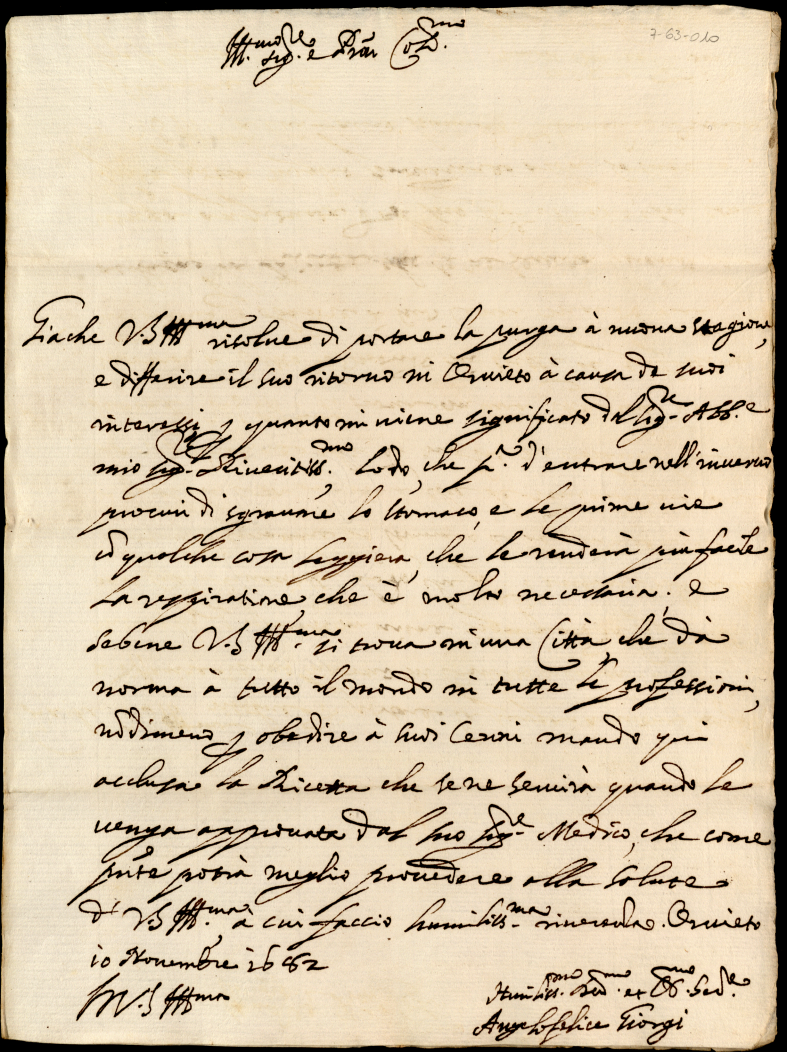 7-63-010
Ill.mo Sig.re e Pron Col.mo
Giache V.S Ill.ma risolue di portare la purga à nuoua stagione,
e differire il suo ritorno in Oruieto à causa de suoi
interessi, p quanto mi uiene significato dal Sig.re Abb.e
mio Sig.re Riueritiss.mo, lodo, che p.a d'entrare nell'inuerno
procuri di sgrauare lo stomaco, e le prime uie
cō qualche cosa leggiera, che le renderà più facile
la respiratione, che è molto necessaria; e
sebene V.S Ill.ma si troua in una Città, che dà
norma à tutto il mondo in tutte le professioni,
nōdimeno p obedire à suoi Cenni mando qui
acclusa la Ricetta che se ne seruirà quando le
uenga approuata dal suo Sig.re Medico, che come
pñte potrà meglio prouedere alla salute
di VS Ill.ma, à cui faccio humiliss.ma riuerenza. Oruieto
10 Nouembre 1682
Di V.S Ill.ma
Humiliss.mo Deu.mo et Obl.mo Sed.re
Angelofelice Giorgi